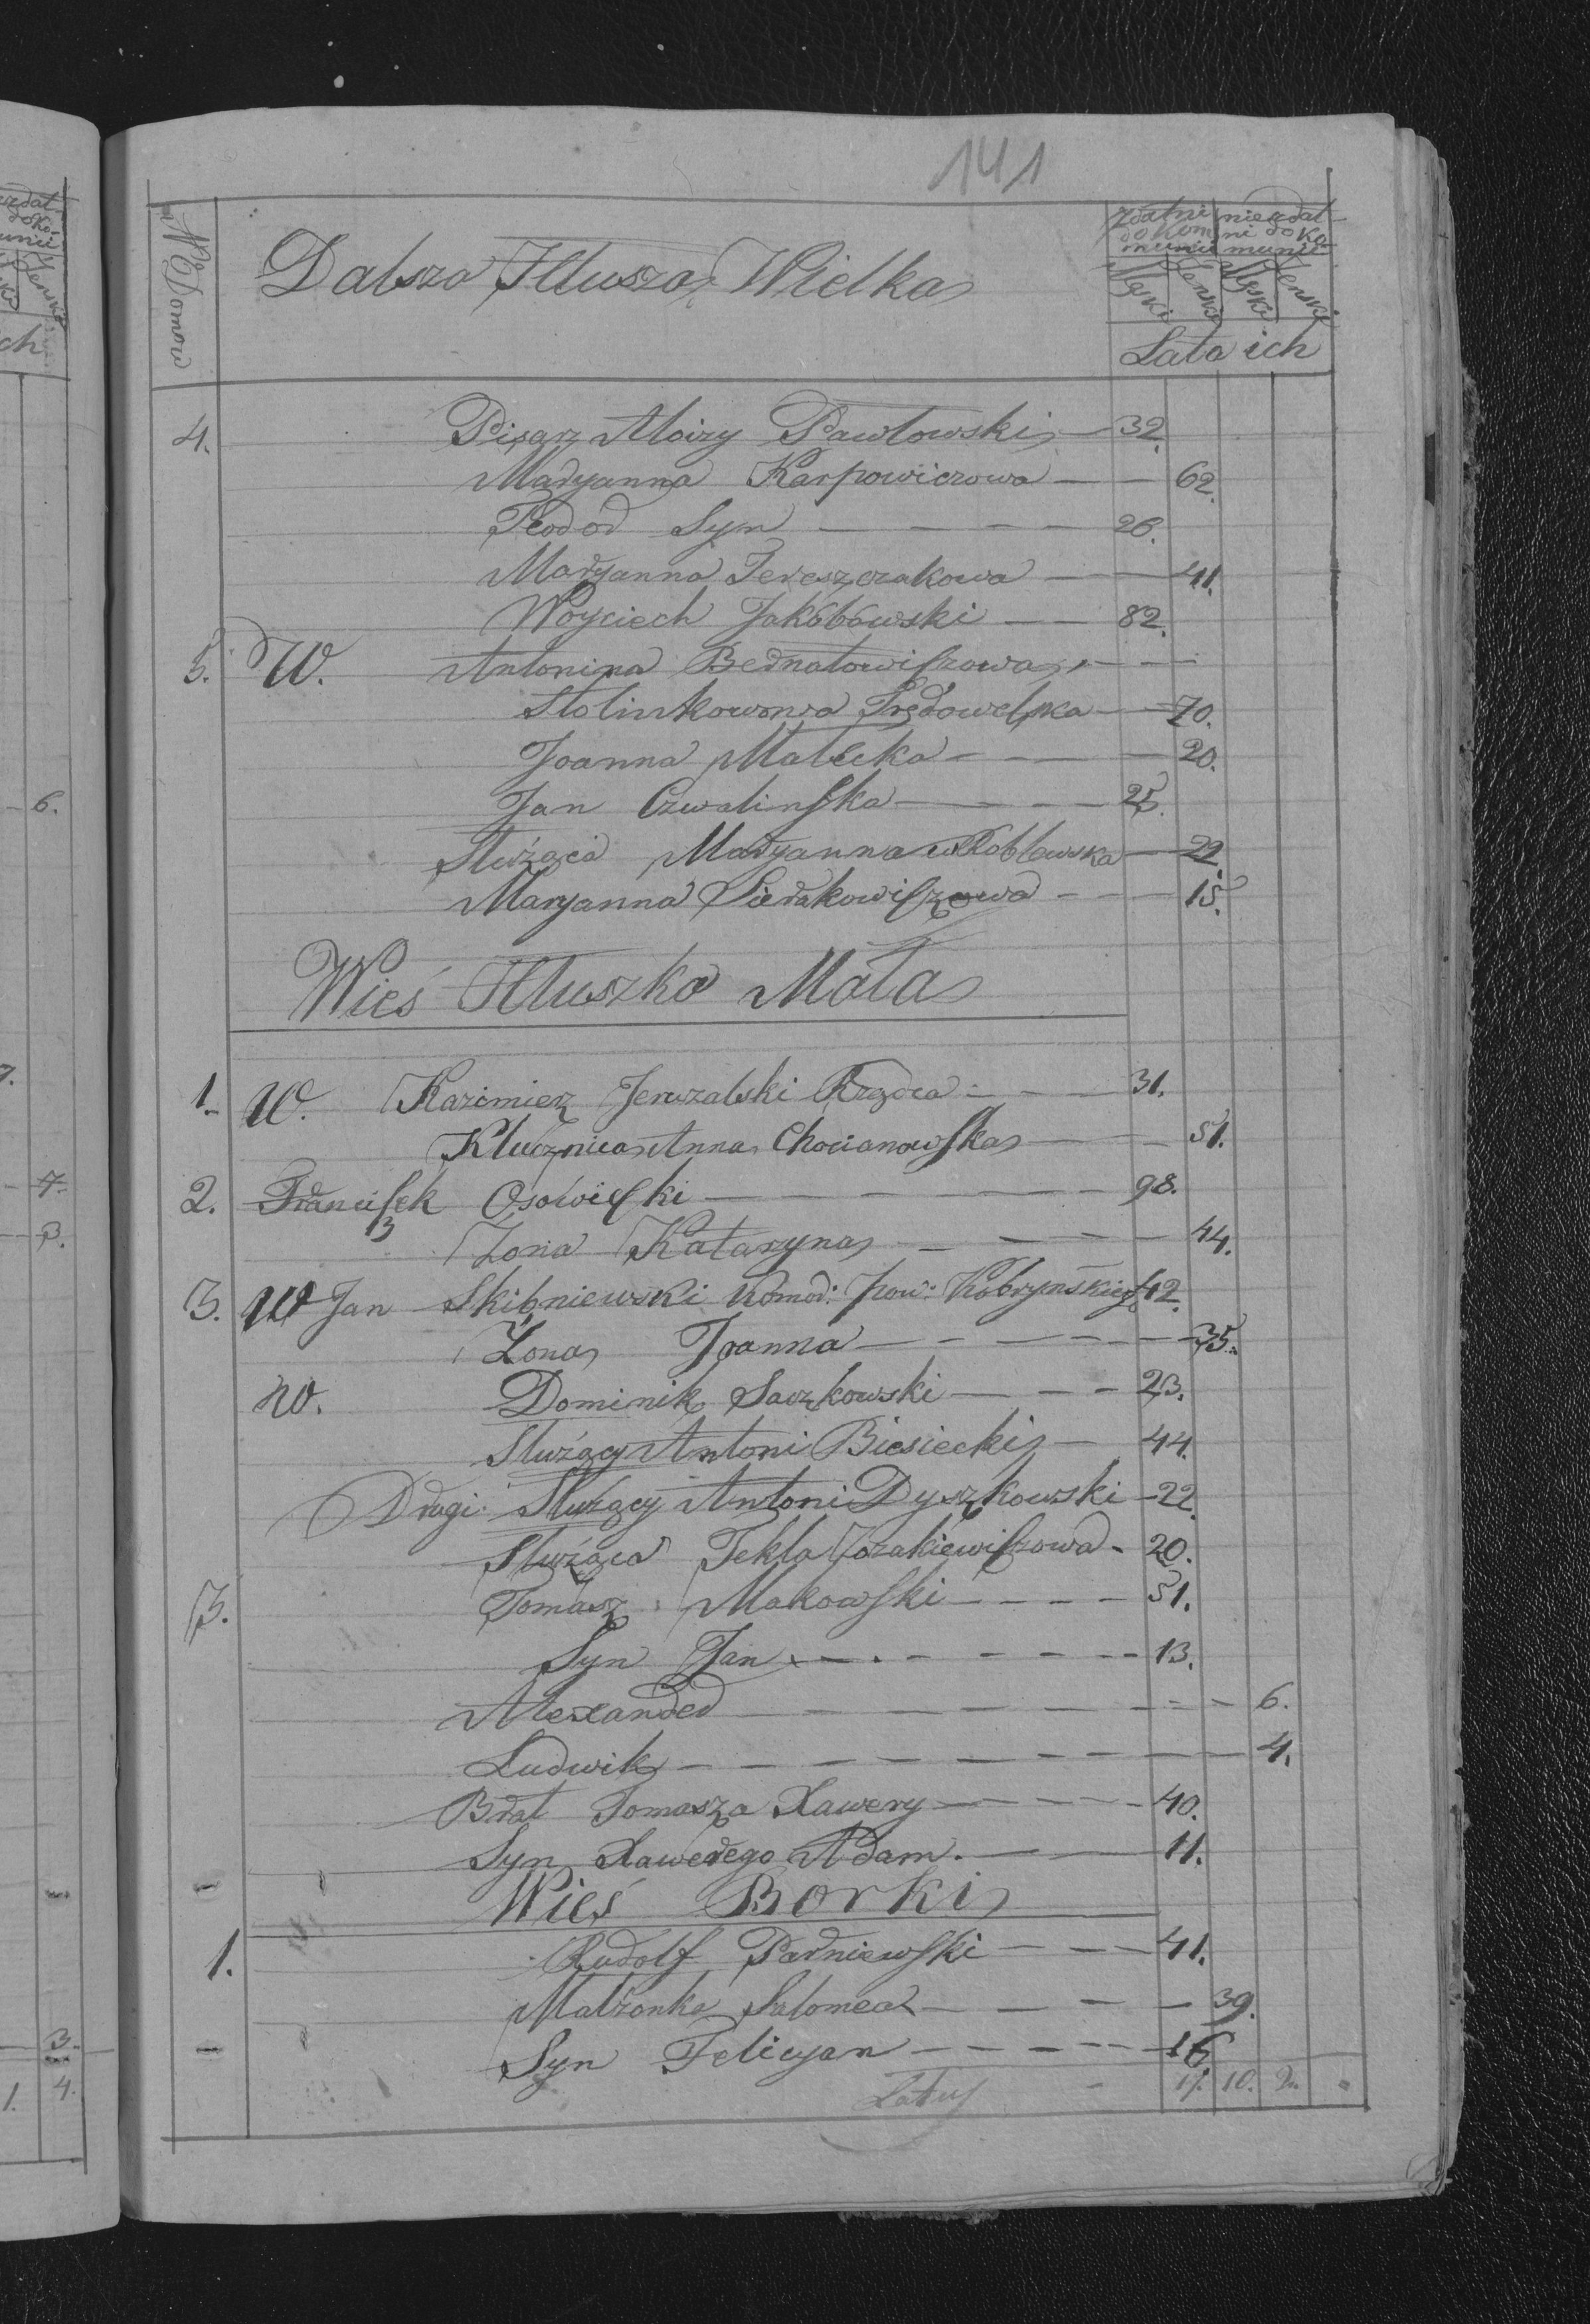 141
No Domow
Dalsza Iłłusza Wielka
zdatni do kommunii
niezdatni do komunii
Męski Żenski Męski Żenski
Lata ich
4. Pisarz Aloizy Pawłowski — 32.
Maryanna Karpowiczowa — — 62.
Teodor Syn — — — — 26.
Maryanna Tereszczakowa — — 41.
Woyciech Jakóbowski — — 82.
5. W. Antonina Bednatowiczowa — —
70.
Joanna Małecka — — — 20.
Jan Czwalinska — — — 25.
Służąca Maryanna — 22.
Maryanna Sierakowiczowa — — 15.
Wieś Iłłuszka Mała
1. W. Kazimierz Jeruzalski Rządca — — 31.
Klucznica Anna Chocianowska — — 51.
2. Francisek Osowiecki — — — — 98.
Żona Katarzyna — — — — 44.
3. W Jan Skibniewski Komod: pow: Kobryńskiego 42.
Żona Joanna — — — — 35.
W. Dominik Saczkowski — — — 23.
Służący Antoni Biesiecki — 44.
Drugi Służący Antoni Dyszkowski — 22.
Służąca Tekla — 20.
3. Tomasz Makowski — — — — 51.
Syn Jan — — — — — 13.
Alexander — — — — — — 6.
Ludwik — — — — — — — 4.
Brat Tomasza Xawery — — — — 40.
Syn Xawerego Adam. — — 11.
Wieś Borki
1. Rudolf Parniewski — — — 41.
Małżonka Salomea — — — — 39.
Syn Felicyan — — — — — 16
Latus — 17. 10. 2.